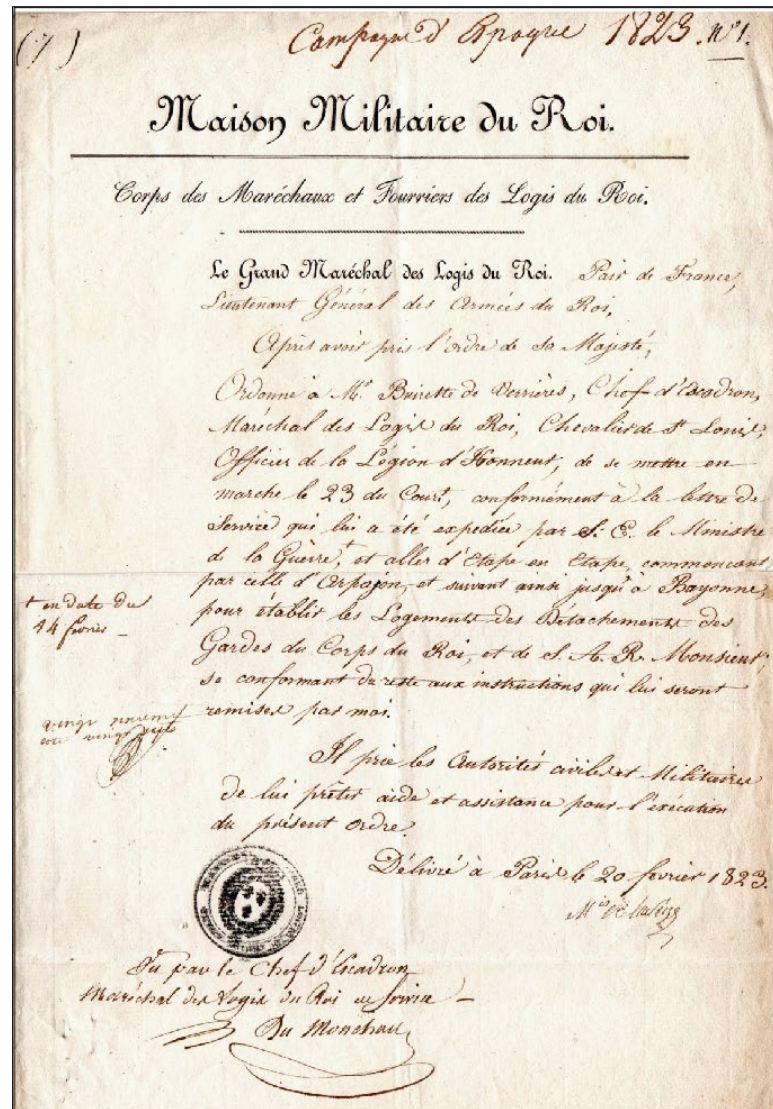 (7)
Campagne d'Espagne 1823. N°1.
Maison Militaire du Roi.
Corps des Maréchaux et Fourriers des Logis du Roi.
Le Grand Maréchal des Logis du Roi. Pair de France,
Lieutenant Général des Armées du Roi,
Après avoir pris l'ordre de Sa Majesté,
Ordonne à Mr. Buirette de Verrières, Chef d'Escadron,
Maréchal des Logis du Roi, Chevalier de St Louis,
Officier de la Légion d'Honneur, de se mettre en
marche le 23 du Court, conformément à la lettre de
Service qui lui a été expédiée par S. E. le Ministre
de la Guerre,+ et aller d'Etape en Etape, commençant
par celle d'Arpajon, et suivant ainsi jusqu'à Bayonne,
pour établir les Logements des Détachements des
Gardes du Corps du Roi, et de S. A. R. Monsieur;
se conformant du reste aux instructions qui lui seront
remises par moi.
+ en date du
14 février
Il prie les Autorités civiles et Militaires
de lui prêter aide et assistance pour l'exécution
du présent ordre.
Délivré à Paris le 20 février 1823.
Mis de
Vu par le Chef d'Escadron
Maréchal des Logis du Roi en service
Du Monchau